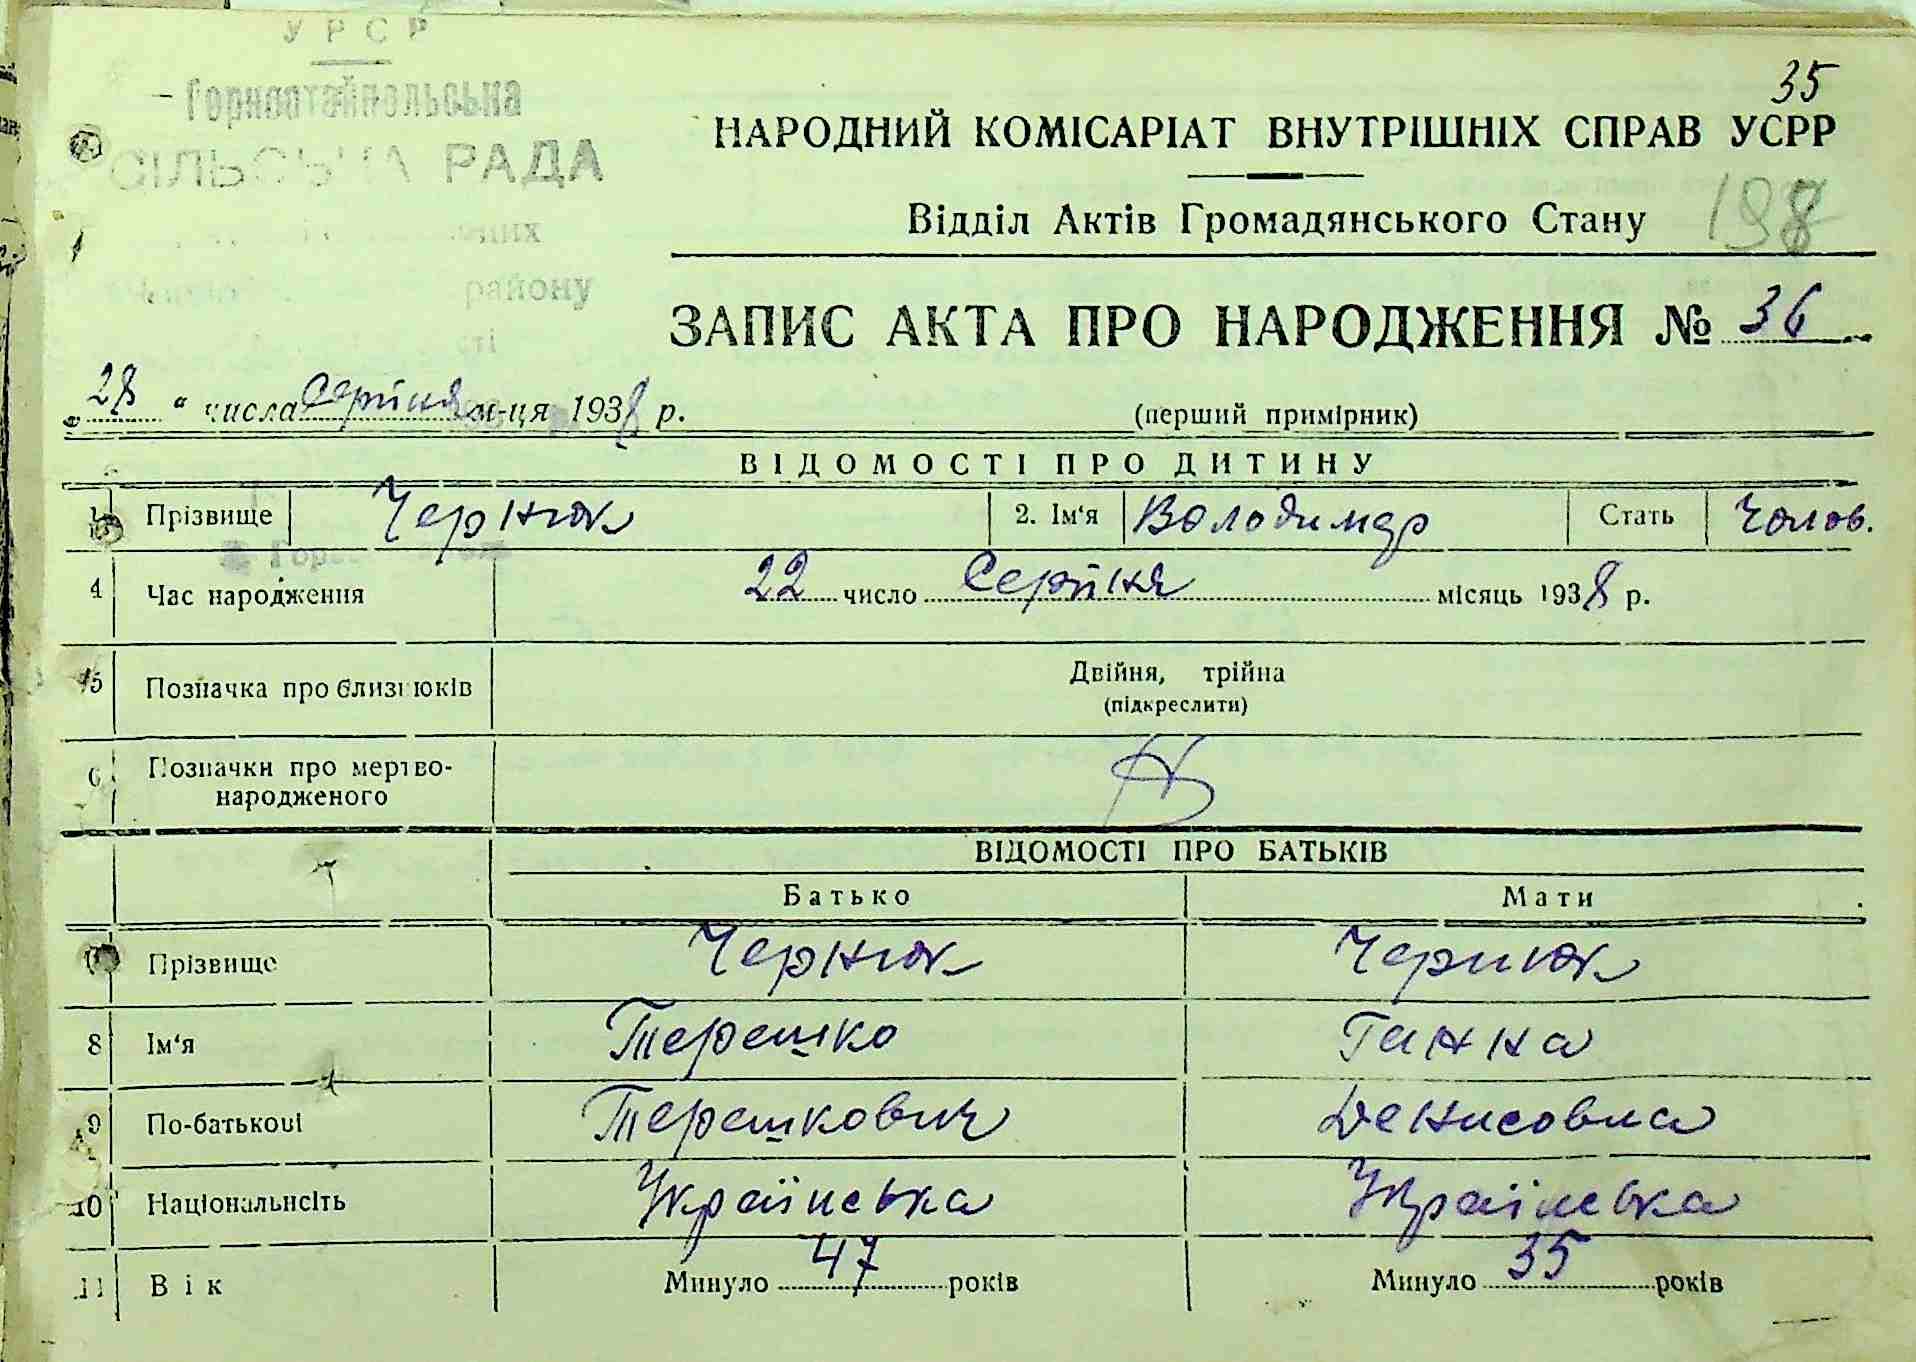 УРСР
35
Горностайпольська
НАРОДНИЙ КОМІСАРІАТ ВНУТРІШНІХ СПРАВ УСРР
СІЛЬСЬКА РАДА
Відділ Актів Громадянського Стану 198
району
ЗАПИС АКТА ПРО НАРОДЖЕННЯ № 36
„28“ числа Серпня м-ця 1938 р.
(перший примірник)
ВІДОМОСТІ ПРО ДИТИНУ
Прізвище Чернюк 2. Ім‘я Володимир Стать Чолов.
4 Час народження 22 число Серпня місяць 1938 р.
5 Позначка про близнюків Двійня, трійна
(підкреслити)
6 Позначки про мертво-
народженого
ВІДОМОСТІ ПРО БАТЬКІВ
Батько Мати
Прізвище Чернюк Чернюк
8 Ім‘я Терешко Ганна
9 По-батькові Терешкович Денисовна
10 Національнсіть Українська Українська
11 Вік Минуло 47 років Минуло 35 років